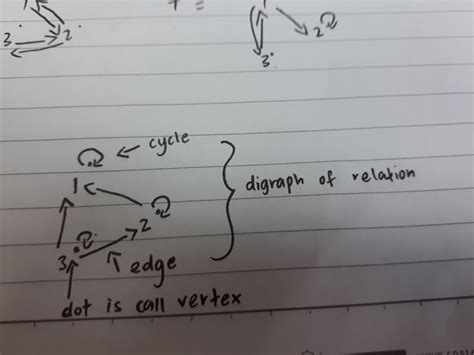 1
3 2
1
2
3
cycle
1
digraph of relation
2
3 edge
dot is call vertex